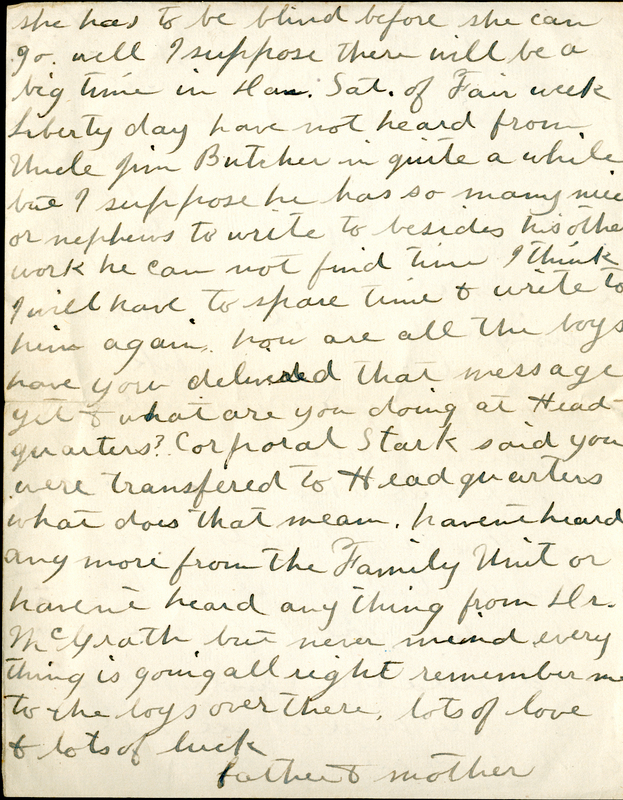 she has to be blind before she can
go. well I suppose there will be a
big time in Han. Sat. of Fair week
Liberty day have not heard from
Uncle Jim Butcher in quite a while
but I suppose he has so many niec
or nephews to write to besides his othe
work he can not find time I think
I will have to spare time & write to
him again. how are all the boys
have you delivered that message
yet & what are you doing at Head-
quarters? Corporal Stark said you
were transfered to Headquarters
what does that mean. havent heard
any more from the Family Unit or
havent heard any thing from Dr.
McGrath but never mind every
thing is going all right remember me
to the boys over there. lots of love
& lots of luck
father & mother